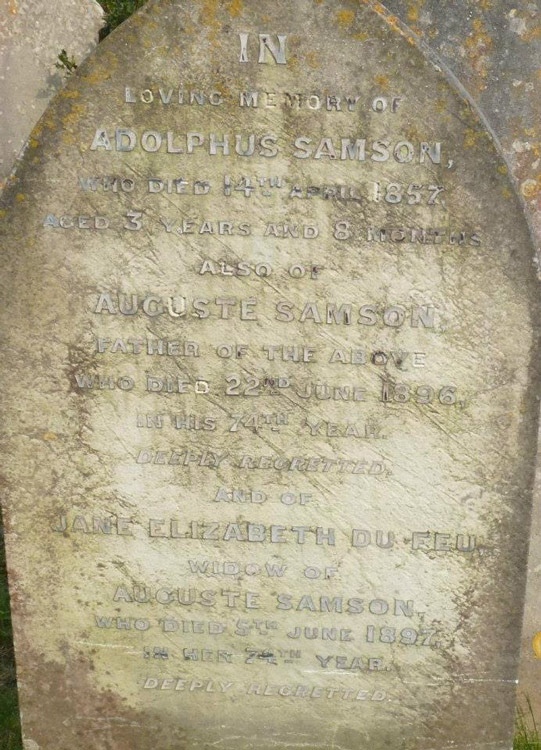 IN
LOVING MEMORY OF
ADOLPHUS SAMSON,
WHO DIED 14TH APRIL 1857
AGED 3 YEARS AND 8 MONTHS
ALSO OF
AUGUSTE SAMSON,
FATHER OF THE ABOVE
WHO DIED 22ND JUNE 1896,
IN HIS 74TH YEAR.
DEEPLY REGRETTED.
AND OF
JANE ELIZABETH DU FEU
WIDOW OF
AUGUSTE SAMSON,
WHO DIED 5TH JUNE 1897,
IN HER YEAR.
DEEPLY REGRETTED.